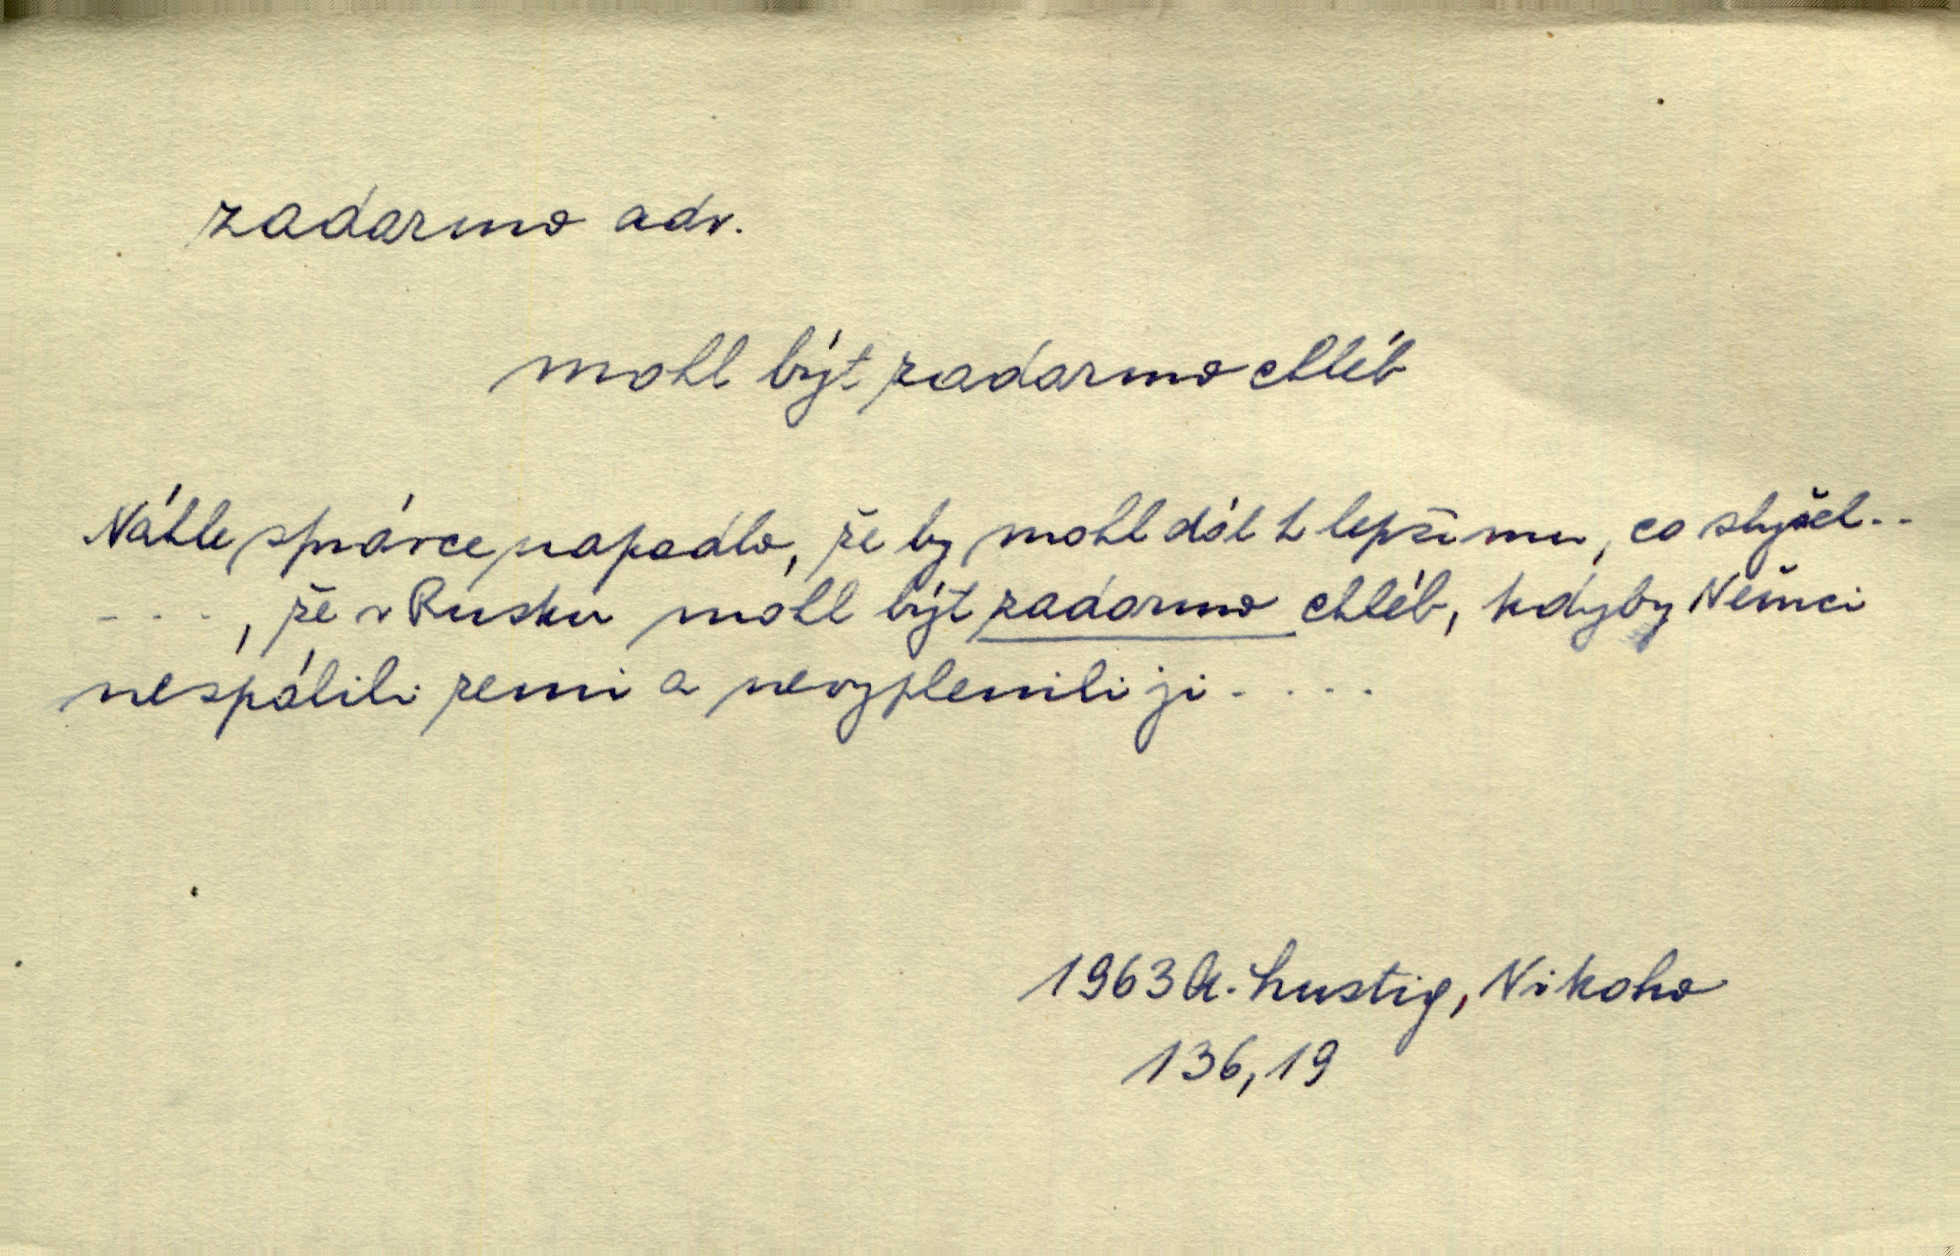 zadarmo adv.
mohl být zadarmo chléb
Náhle správce napadlo, že by mohl dát k lepšímu, co slyšel..
- . . . , že v Rusku mohl být zadarmo chléb, kdyby Němci
nespálili zemi a nevyplenili ji . . . .
1963 A. Lustig, Nikoho
136,19